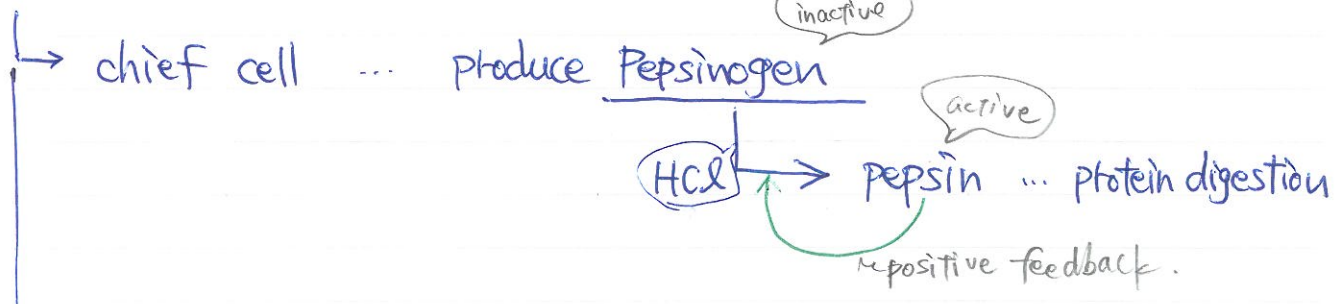 inactive
→ chief cell ... produce Pepsinogen
active
HCl → pepsin ... protein digestion
positive feedback.